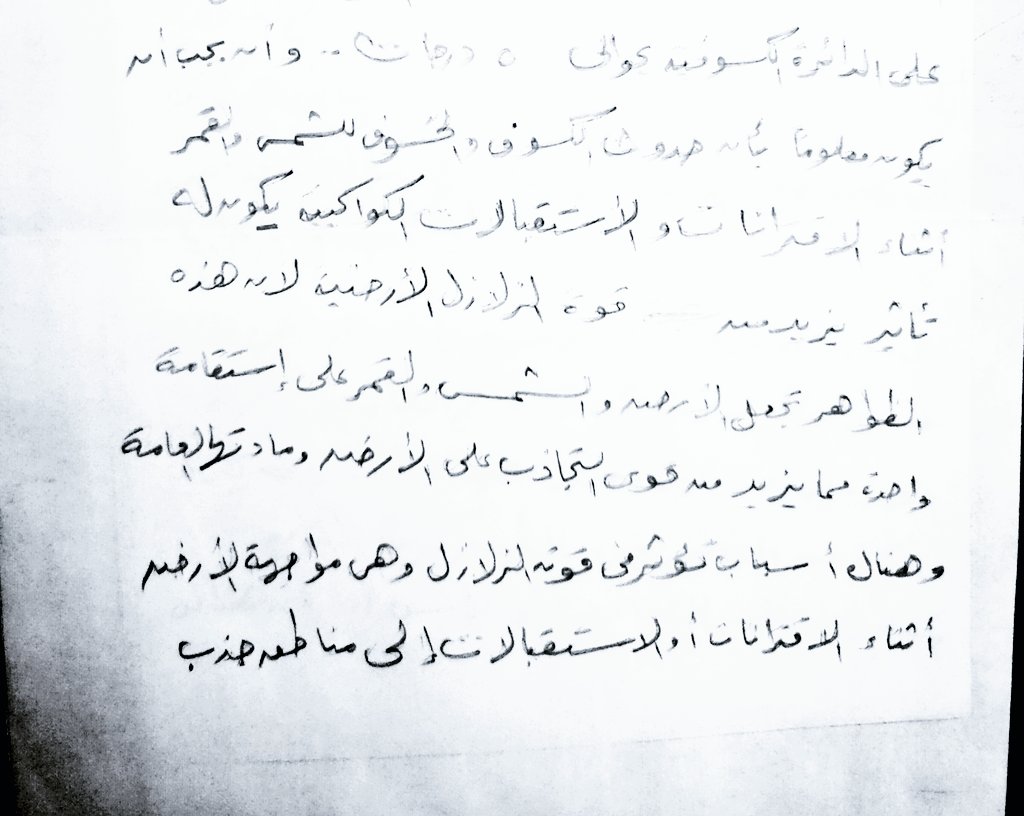 على الدائرة الكسوفية بحوالى ٥ درجات .. وأن يجب أن
يكون معلوماً بأن حدوث الكسوف والخسوف للشمس والقمر
أثناء الاقترانات و الأستقبالات الكواكبية يكون له
تأثير يزيد من قوة الزلازل الأرضية لان هذه
الظواهر تجعل الأرض والشمس والقمر على إستقامة
واحدة مما يزيد من قوى التجاذب على الأرض ومادتها العامة
وهناك أسباب تؤثر فى قوة الزلازل وهى مواجهة الأرض
أثناء الاقترانات أو الاستقبالات إلى مناطق جذب